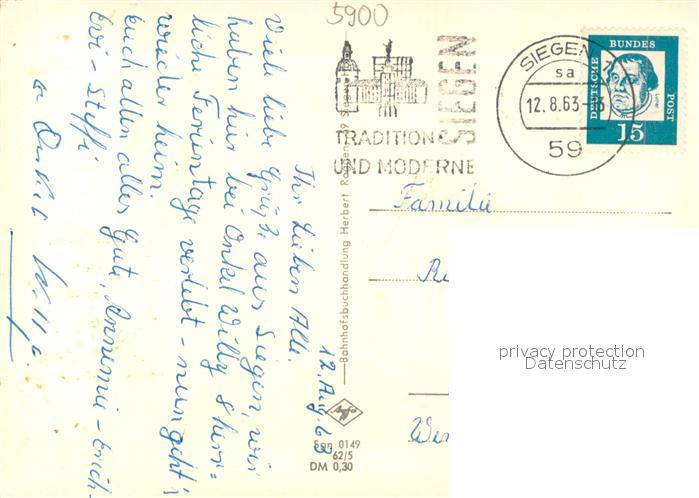 5900
SIEGEN
TRADITION
UND MODERNE
SIEGEN 1
sa
12.8.63-
59
DEUTSCHE
BUNDES
POST
15
12. Aug. 63
Ihr Lieben Alle.
Viele liebe Grüße aus Siegen, wir
haben hier bei Onkel Willy 8 herr=
liche Ferientage verlebt - nun geht's
wieder heim.
Euch allen alles Gute, Annemie - Erich-
Evi - Steffi
Familie
Bahnhofsbuchhandlung Herbert
Sgn 0149
62/5
DM 0,30
privacy protection
Datenschutz